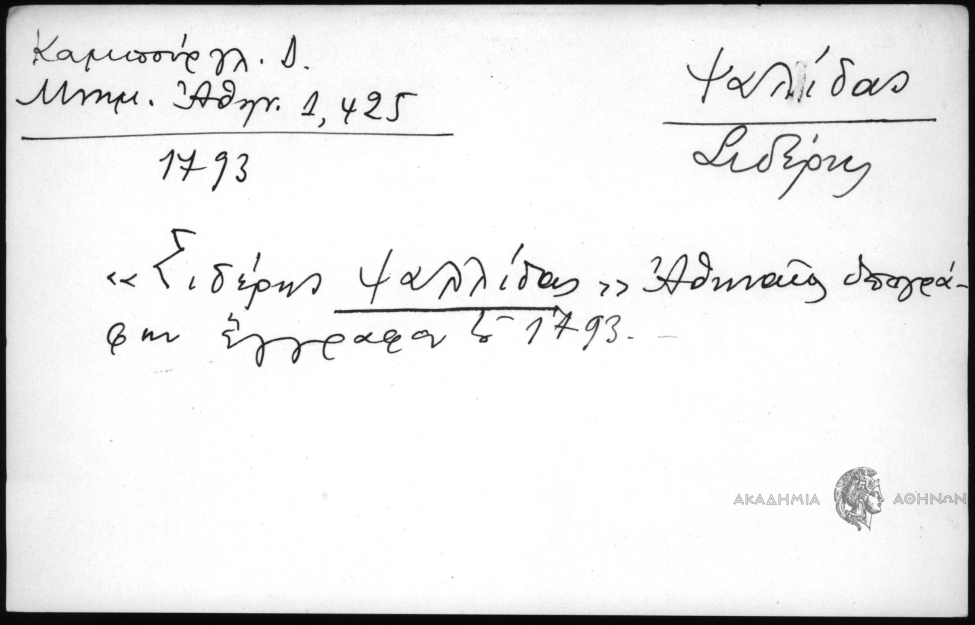 Καμπούργλ. Δ.
Μνημ. Ἀθην. 1, 425
1793
Ψαλίδας
Σιδέρης
« Σιδέρης Ψαλλίδας » Ἀθηναῖος ὑπογρά-
φην ἔγγραφον 1793.
ΑΚΑΔΗΜΙΑ ΑΘΗΝΩΝ